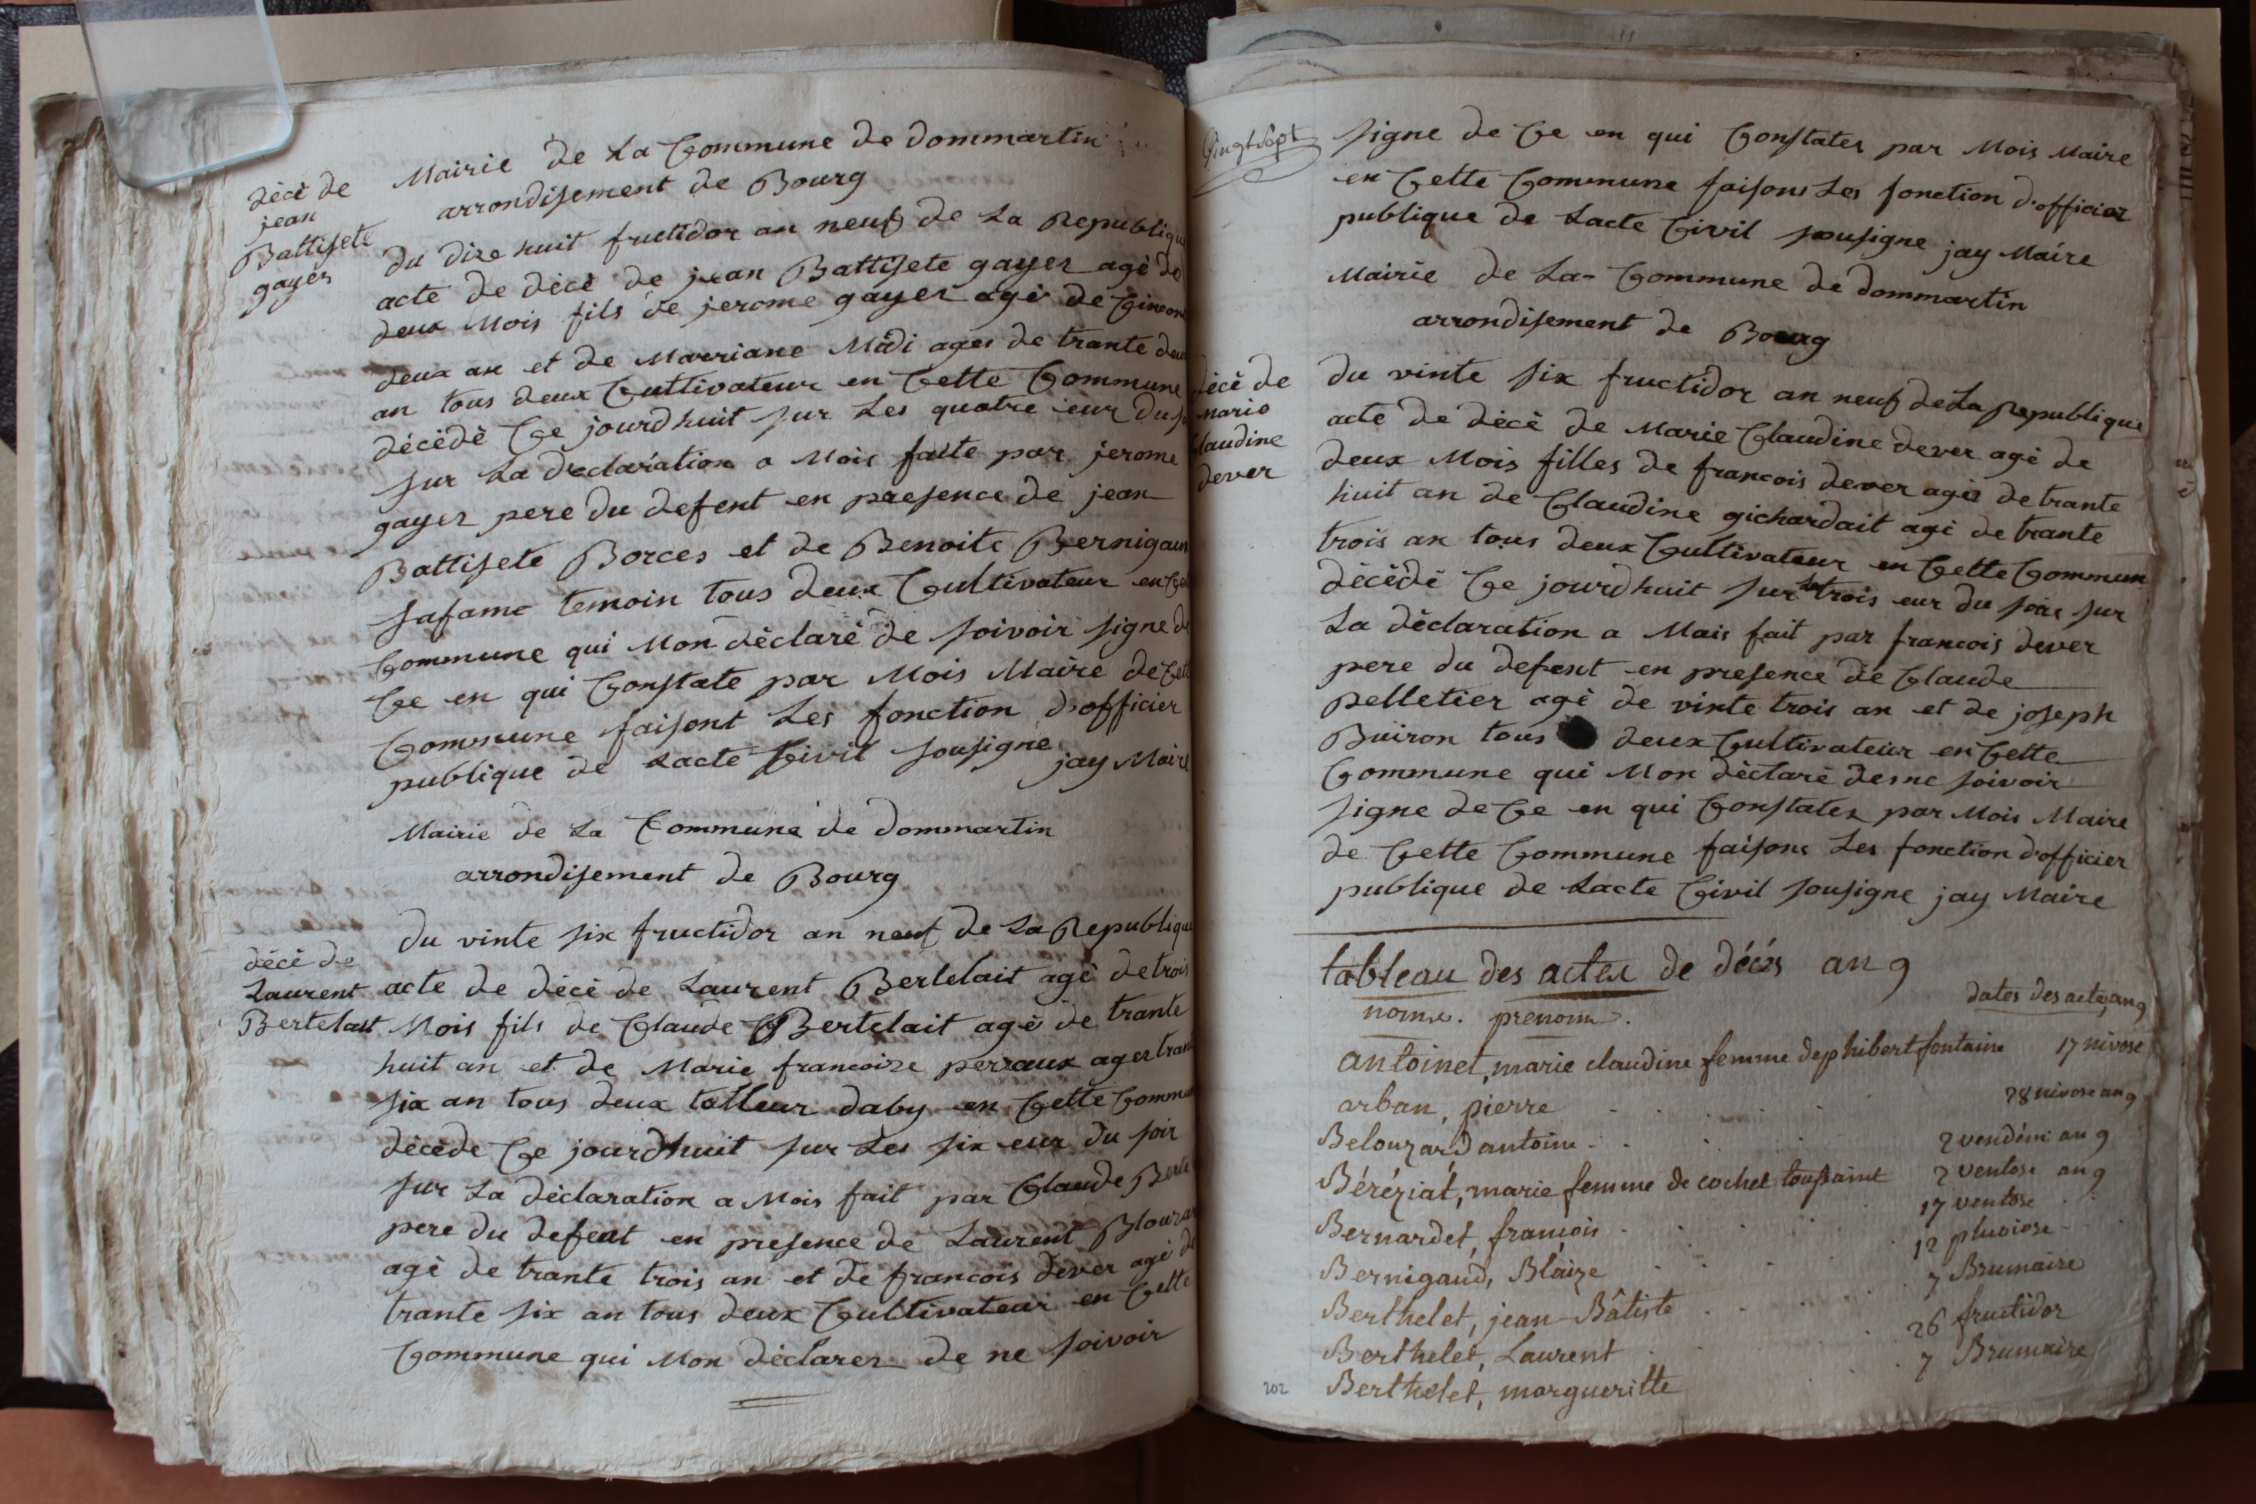 Mairie de La Commune de dommartin
arrondisement de Bourg
dècè de
jean
Battisete
gayer
du dixe huit fructidor an neuf de La Republique
acte de dècè de jean Battisete gayer agè de
deux Mois fils de jerome gayer agè de
deux an et de Marriane Mädi ages de trante deux
an tous deux Cultivateur en Cette Commune
dècèdè Ce jourdhuit sur Les quatre eur du
sur La declaration a Mois faite par jerome
gayer pere du defent en presence de jean
Battisete Borces et de Benoite Bernigaun
safame temoin tous deux Cultivateur en
Commune qui Mon dèclarè de soivoir signe de
Ce en qui Constate par Mois Maire de
Commune faisont Les fonction d'officier
publique de Lacte Civil sousigne jay Maire
Mairie de La Commune de dommartin
arrondisement de Bourg
dècè de
Laurent
Bertelait
du vinte six fructidor an neuf de La Republique
acte de dècè de Laurent Bertelait agè de trois
Mois fils de Claude Bertelait agè de trante
huit an et de Marie francoise perraux ages
six an tous deux tolleur daby en Cette
dècède Ce jourdhuit sur Les six eur du soir
sur La dèclaration a Mois fait par Claude
pere du defent en presence de Laurent
agè de trante trois an et de francois dever agè de
trante six an tous deux Cultivateur en Cette
Commune qui Mon dèclarer de ne soivoir
Vingt Sept
signe de Ce en qui Constater par Mois Maire
en Cette Commune faisons Les fonction d'officier
publique de Lacte Civil sousigne jay Maire
Mairie de La Commune de dommartin
arrondisement de Bourg
dècè de
Mario
Claudine
dever
du vinte six fructidor an neuf de La Republique
acte de dècè de Marie Claudine dever agè de
deux Mois filles de francois dever agès de trante
huit an de Claudine gichardait agè de trante
trois an tous deux Cultivateur en Cette Commun
dècèdè Ce jourdhuit sur les trois eur du soire sur
La dèclaration a Mais fait par francois dever
pere du defent en presence de Claude
pelletier agè de vinte trois an et de joseph
Buiron tous deux Cultivateur en Cette
Commune qui Mon dèclarè desne soivoir
signe de Ce en qui Constater par Mois Maire
de Cette Commune faisons Les fonction d'officier
publique de Lacte Civil sousigne jay Maire
tableau des actes de décés an 9
noms. prenoms. dates des actes, an 9
antoinet, marie claudine femme de phibert fontaine 17 nivose
arban, pierre 28 nivose an 9
Belouzard antoine 2 vendémi an 9
Béréziat, marie femme de cochet toussaint 2 ventose an 9
Bernardet, francois 17 ventose
Bernigaud, Blaize 12 pluviose
Berthelet, jean-Bâtiste 7 Brumaire
Berthelet, Laurent 26 fructidor
Berthelet, margueritte 7 Brumaire
202